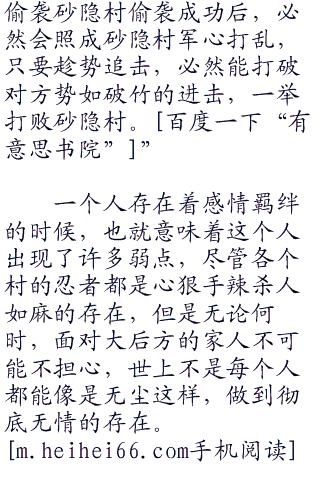 偷袭砂隐村偷袭成功后，必
然会照成砂隐村军心打乱，
只要趁势追击，必然能打破
对方势如破竹的进击，一举
打败砂隐村。[百度一下“有
意思书院”]”
一个人存在着感情羁绊
的时候，也就意味着这个人
出现了许多弱点，尽管各个
村的忍者都是心狠手辣杀人
如麻的存在，但是无论何
时，面对大后方的家人不可
能不担心，世上不是每个人
都能像是无尘这样，做到彻
底无情的存在。
[m.heihei66.com手机阅读]